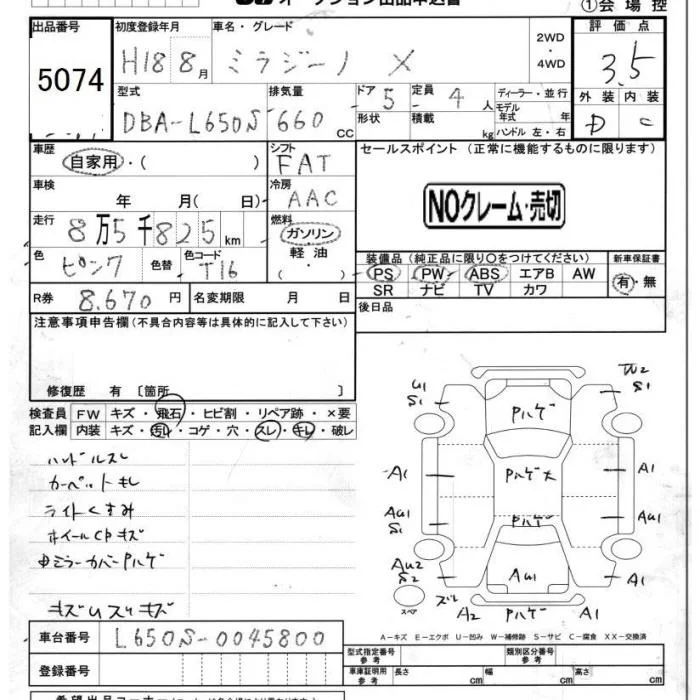 オークション出品申込書
①会場控
出品番号
5074
初度登録年月
H18 8月
車名・グレード
ミラジーノ X
2WD
・
4WD
評価点
3.5
外装 内装
D C
型式
DBA-L650S
排気量
660 CC
ドア 5
形状
定員 4 人
積載 kg
ディーラー・並行
モデル年式 年
ハンドル 左・右
車歴
自家用・( )
シフト
FAT
車検
年 月( 日)
冷房
AAC
走行
8万5千825km
燃料
ガソリン・
軽油・
( )
色
ピンク
色替
色コード
T16
R券 8.670円
名変期限 月 日
セールスポイント (正常に機能するものに限ります)
NOクレーム・売切
装備品 (純正品に限り○をつけてください)
PS PW ABS エアB AW
SR ナビ TV カワ
新車保証書
有・無
後日品
注意事項申告欄(不具合内容等は具体的に記入して下さい)
修復歴 有 〔箇所 〕
検査員 FW キズ・飛石・ヒビ割・リペア跡・×要
記入欄 内装 キズ・汚レ・コゲ・穴・スレ・キレ・破レ
ハンドルスレ
カーペットモレ
ライトくすみ
ホイールCPキズ
ミラーカバーPハゲ
キズUスリキズ
U1
S1
Pハゲ
W2
S1
A1
Pハゲ大
A1
AU1
S1
Pハゲ
AU1
AU2
S2
AU1
A1
スレ
スペア
A2
Pハゲ
A1
A-キズ E-エクボ U-凹み W-補修跡 S-サビ C-腐食 XX-交換済
車台番号
L650S-0045800
登録番号
型式指定番号
参考
類別区分番号
参考
車庫証明用
参考
長さ cm
幅 cm
高さ cm